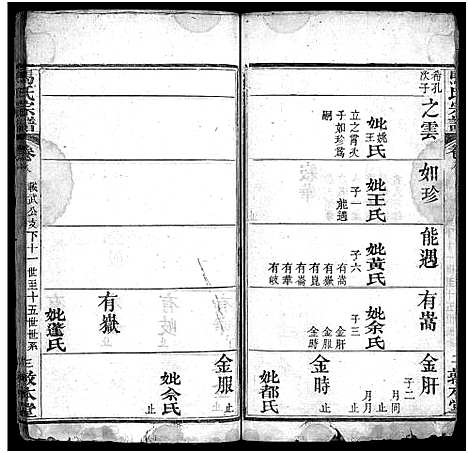 馬氏宗譜
希孔
次子
之雲
妣姚氏
王
立之霄次
子如珍爲
嗣
如珍
妣王氏
子一
能遇
能遇
妣黃氏
子六
有嵩
有嶽
有崑
有崙
有華
有岐
有嵩
妣余氏
子三
金肝
金服
金時
金肝
子二
月同
月月
止
金時
妣都氏
止
敦本堂
金服
妣余氏
止
有嶽
妣蓬氏
止
馬氏宗譜
卷
毅武公支下十一世至十五世世系
敦本堂